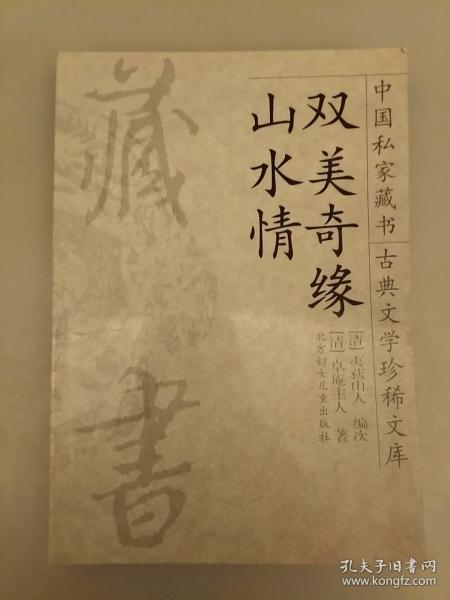 中国私家藏书 古典文学珍稀文库
双美奇缘
山水情
[清] 夷荻山人 编次
[清] 卓庵主人 著
北方妇女儿童出版社
藏書
孔夫子旧书网
www.kongfz.com